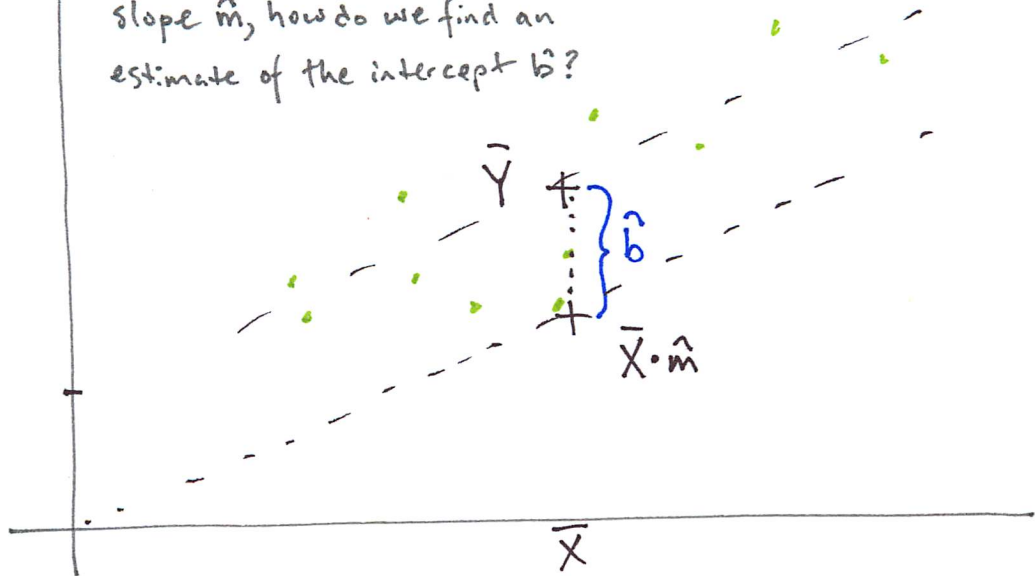 slope m̂, how do we find an
estimate of the intercept b̂?
Ȳ
b̂
X̄·m̂
X̄